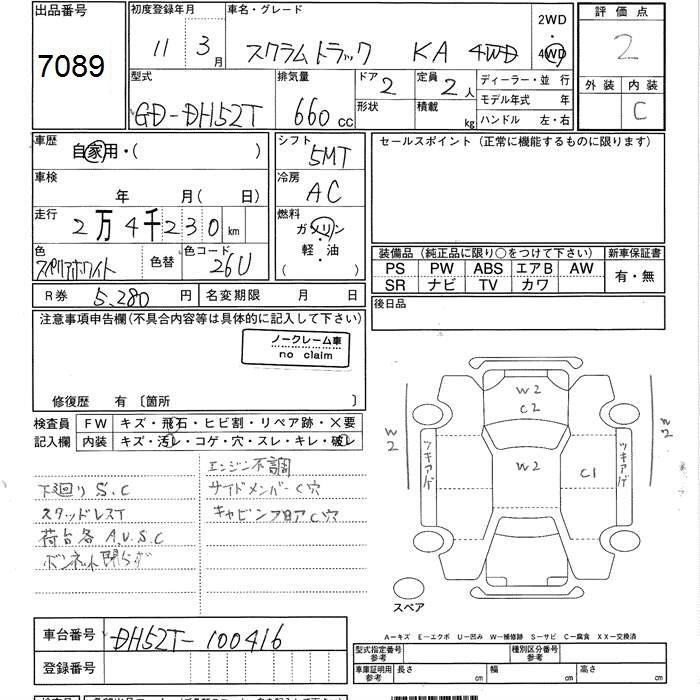 出品番号 初度登録年月 車名・グレード 2WD 評価点
7089 11 3月 スクラムトラック KA 4WD 4WD 2
型式 排気量 ドア 2 定員 2人 ディーラー・並行 外装 内装
GD-DH52T 660cc 形状 積載 kg モデル年式 年 C
ハンドル 左・右
車歴 自家用・( ) シフト 5MT セールスポイント (正常に機能するものに限ります)
車検 年 月(日) 冷房 AC
走行 2万4千230km 燃料 ガソリン・軽油 ( )
色 スペリアホワイト 色替 色コード 26U
装備品 (純正品に限り○をつけて下さい) 新車保証書
PS PW ABS エアB AW 有・無
SR ナビ TV カワ
R券 5,280円 名変期限 月 日 後日品
注意事項申告欄(不具合内容等は具体的に記入して下さい)
ノークレーム車
no claim
修復歴 有〔箇所 〕
検査員 FW キズ・飛石・ヒビ割・リペア跡・×要
記入欄 内装 キズ・汚レ・コゲ・穴・スレ・キレ・破レ
エンジン不調
下廻りS.C サイドメンバーC穴
スタッドレスT キャビンフロアC穴
荷台各A.U.S.C
W2
C2
W2
W2
W2
C1
ツキアゲ
ツキアゲ
スペア
A-キズ E-エクボ U-凹み W-補修跡 S-サビ C-腐食 XX-交換済
車台番号 DH52T-100416
登録番号
型式指定番号 参考 種別区分番号 参考
車庫証明用 参考 長さ cm 幅 cm 高さ cm